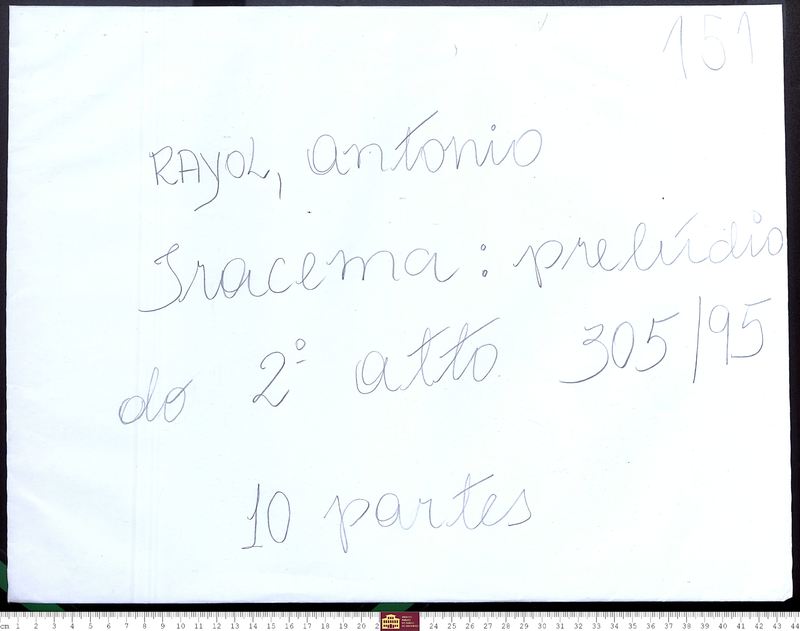 151
RAYOL, Antonio
Iracema: prelúdio
do 2º atto 305/95
10 partes
cm 1 2 3 4 5 6 7 8 9 10 11 12 13 14 15 16 17 18 19 20 2 24 25 26 27 28 29 30 31 32 33 34 35 36 37 38 39 40 41 42 43 44